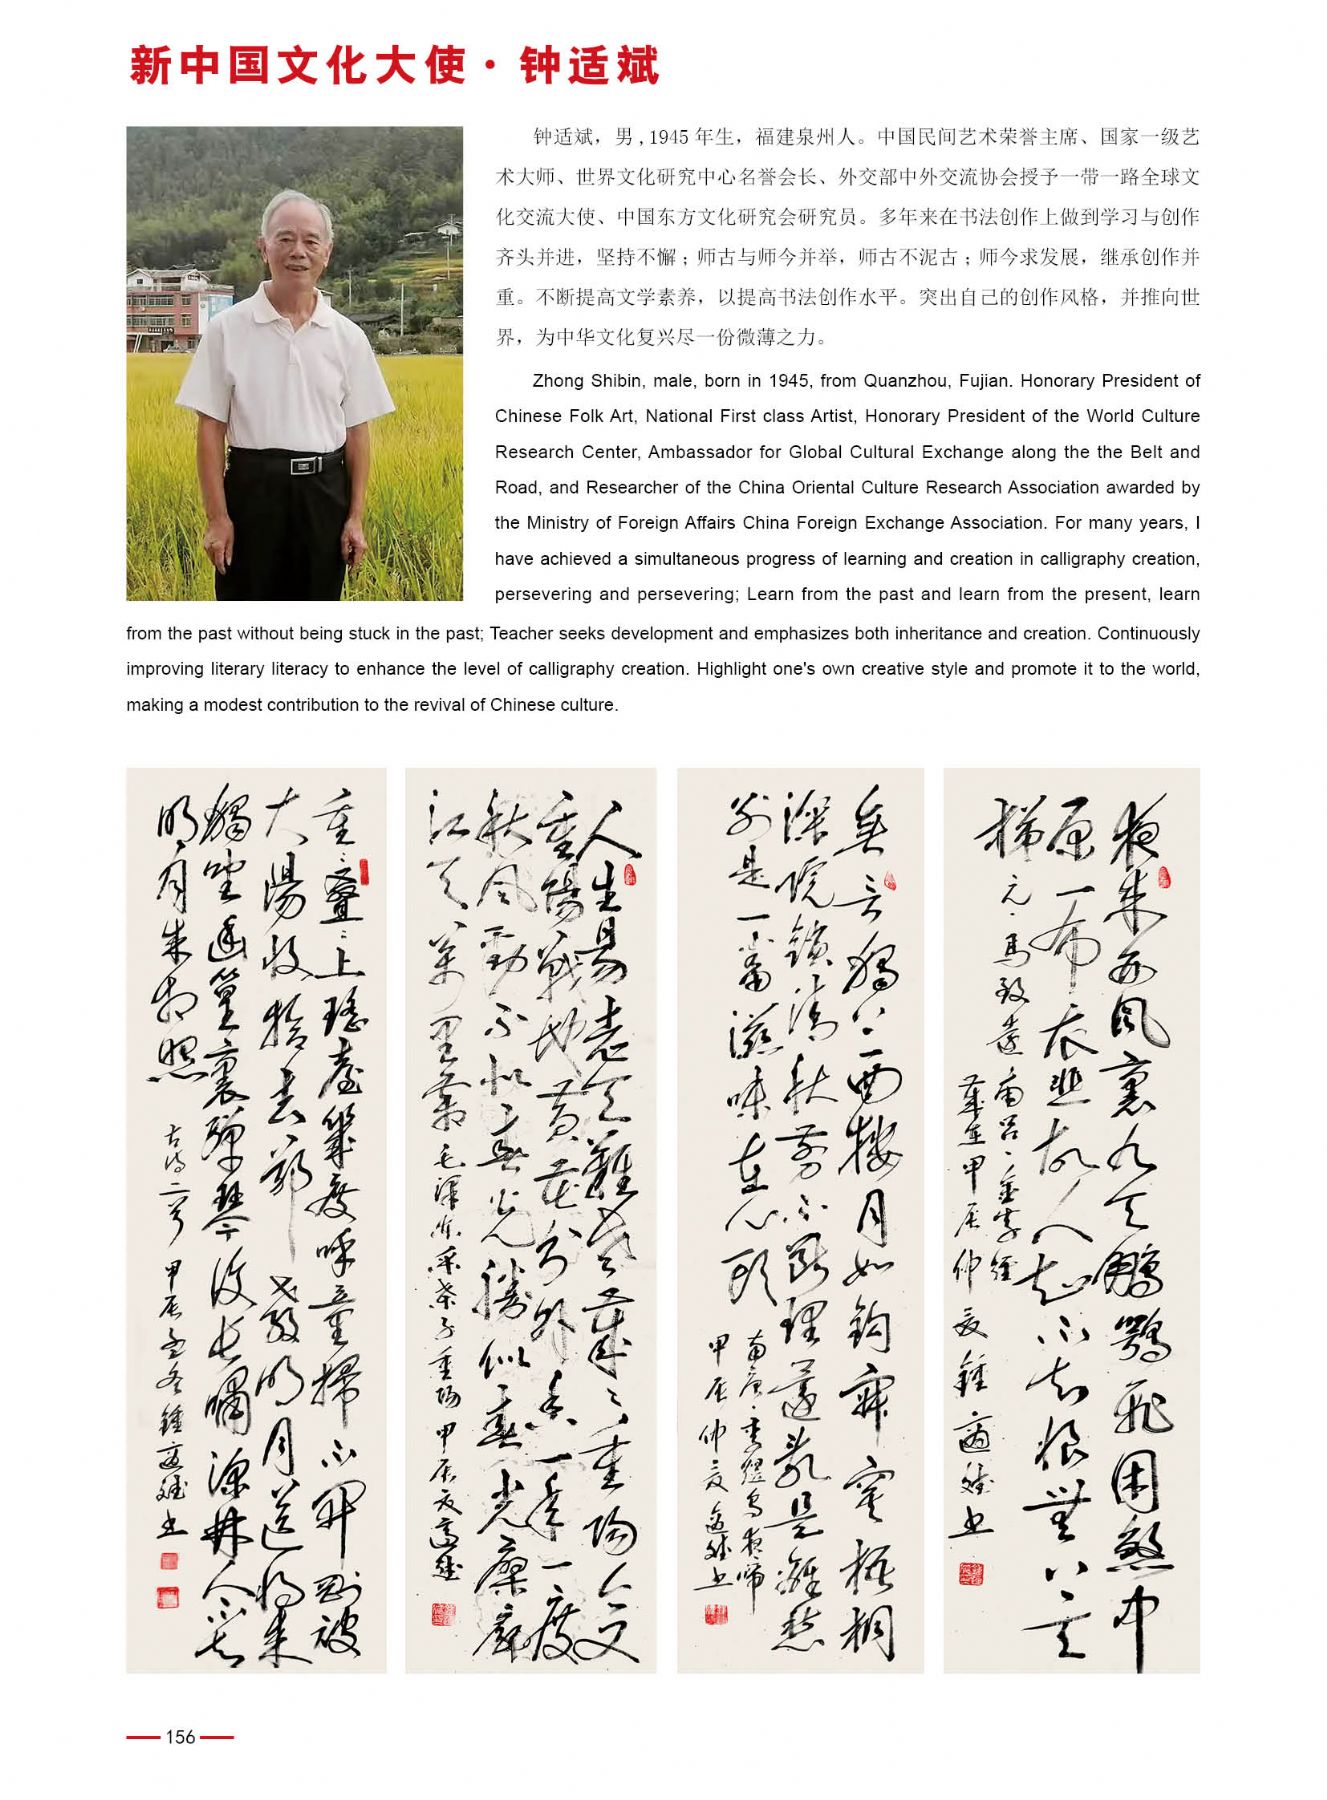 新中国文化大使·钟适斌
钟适斌，男，1945 年生，福建泉州人。中国民间艺术荣誉主席、国家一级艺
术大师、世界文化研究中心名誉会长、外交部中外交流协会授予一带一路全球文
化交流大使、中国东方文化研究会研究员。多年来在书法创作上做到学习与创作
齐头并进，坚持不懈；师古与师今并举，师古不泥古；师今求发展，继承创作并
重。不断提高文学素养，以提高书法创作水平。突出自己的创作风格，并推向世
界，为中华文化复兴尽一份微薄之力。
Zhong Shibin, male, born in 1945, from Quanzhou, Fujian. Honorary President of
Chinese Folk Art, National First class Artist, Honorary President of the World Culture
Research Center, Ambassador for Global Cultural Exchange along the the Belt and
Road, and Researcher of the China Oriental Culture Research Association awarded by
the Ministry of Foreign Affairs China Foreign Exchange Association. For many years, I
have achieved a simultaneous progress of learning and creation in calligraphy creation,
persevering and persevering; Learn from the past and learn from the present, learn
from the past without being stuck in the past; Teacher seeks development and emphasizes both inheritance and creation. Continuously
improving literary literacy to enhance the level of calligraphy creation. Highlight one's own creative style and promote it to the world,
making a modest contribution to the revival of Chinese culture.
重重疊疊上瑤臺幾度呼童掃不開剛被
大陽收拾去郤教明月送將来
獨坐幽篁裏彈琴復長嘯深林人不知
明月来相照
古詩二首 甲辰孟冬鍾適斌书
人生易老天難老歲歲重陽今又
重陽戰地黄花分外香一年一度
秋風勁不似春光勝似春光寥廓
江天萬里霜 毛澤东采桑子重陽 甲辰夏適斌
無言獨上西樓月如鈎寂寞梧桐
深院鎖清秋剪不斷理還亂是離愁
别是一番滋味在心頭
南唐·李煜烏夜啼
甲辰仲夏適斌书
夜来西風裏九天鵬鶚飛困煞中
原一布衣悲故人知不知恨無上天
梯 元·馬致遠南吕·金字經
歲在甲辰仲夏鍾適斌书
156